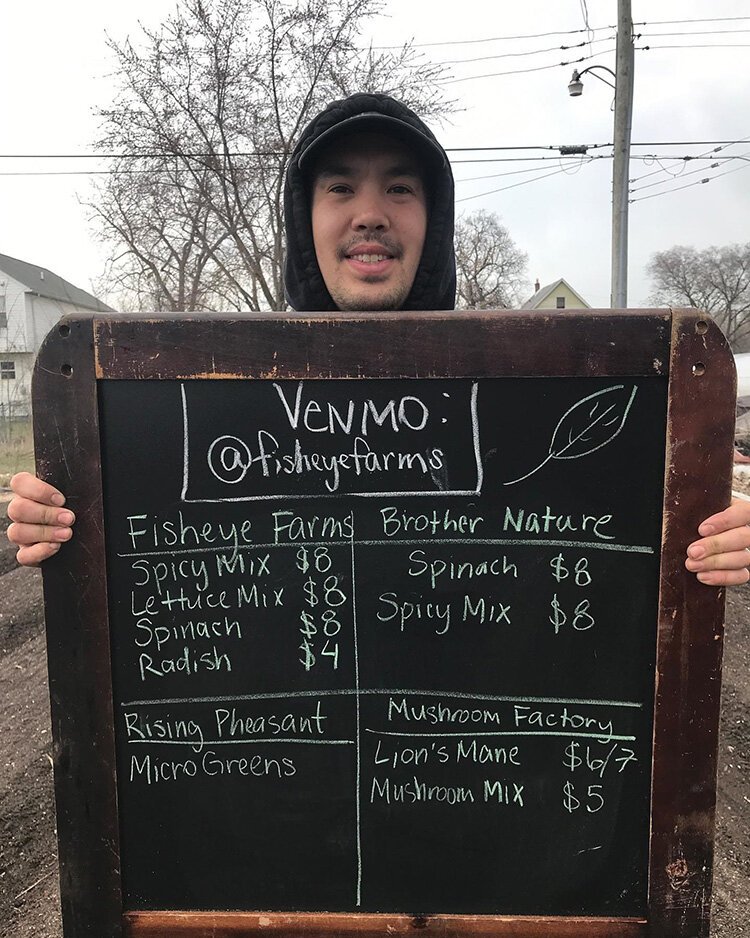 VENMO:
@fisheyefarms
Fisheye Farms
Spicy Mix $8
Lettuce Mix $8
Spinach $8
Radish $4
Brother Nature
Spinach $8
Spicy Mix $8
Rising Pheasant
Micro Greens
Mushroom Factory
Lion's Mane $6/7
Mushroom Mix $5